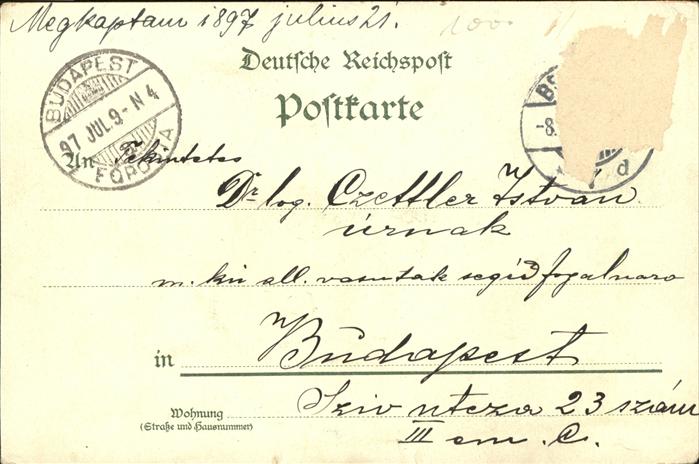 Megkaptam 1897 julius 21.
100
Deutsche Reichspost
Postkarte
BUDAPEST
97 JUL. 9 - N 4
FŐPOSTA
-8.
d
An Tekintetes
Dr log. Czettler István
úrnak
m. kir áll. vasutak segéd fogalmazo
in Budapest
Wohnung
(Straße und Hausnummer)
Sziv utcza 23 szám
III em. C.